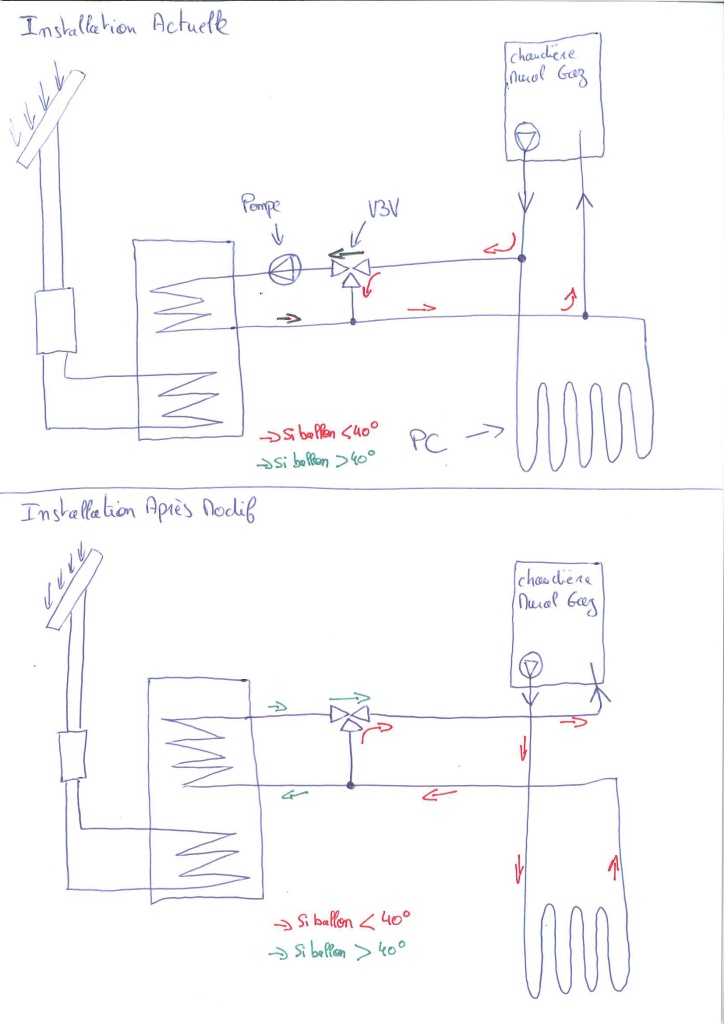 Installation Actuelle
chaudière
Mural Gaz
Pompe
V3V
→ Si ballon < 40°
→ Si ballon > 40°
PC →
Installation Après Modif
chaudière
Mural Gaz
→ Si ballon < 40°
→ Si ballon > 40°